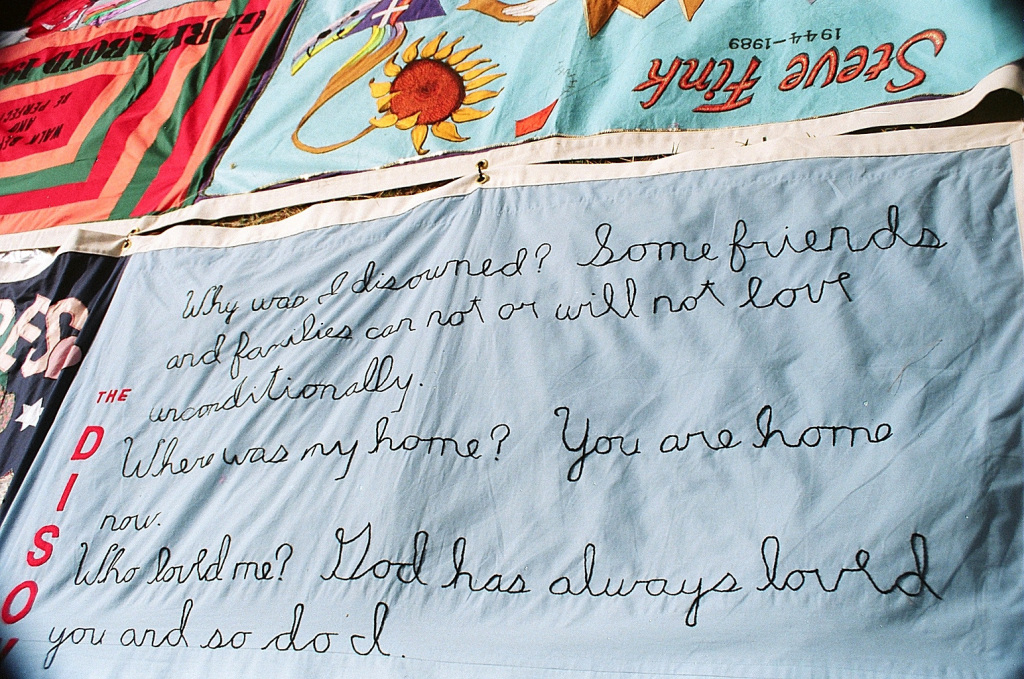 CARL A. BOYD
Steve Fink
1944-1989
Why was I disowned? Some friends
and families can not or will not love
unconditionally.
THE
DISO
Where was my home? You are home
now.
Who loved me? God has always loved
you and so do I.